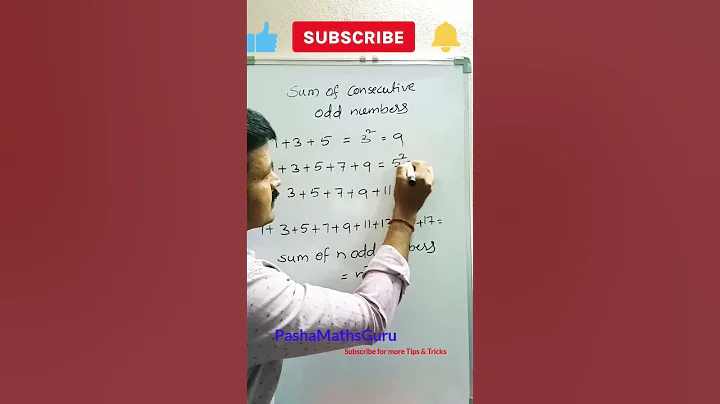 SUBSCRIBE
Sum of Consecutive
odd numbers
+ 3 + 5 = 3² = 9
+ 3 + 5 + 7 + 9 = 5²
3 + 5 + 7 + 9 + 11
1 + 3 + 5 + 7 + 9 + 11 + 17 =
sum of n odd
=
PashaMathsGuru
Subscribe for more Tips & Tricks